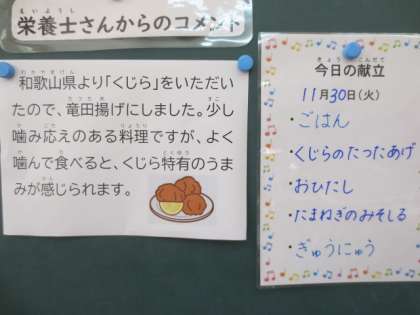 栄養士さんからのコメント
和歌山県より「くじら」をいただい
たので、竜田揚げにしました。少し
噛み応えのある料理ですが、よく
噛んで食べると、くじら特有のうま
みが感じられます。
今日の献立
11月30日(火)
・ごはん
・くじらのたつたあげ
・おひたし
・たまねぎのみそしる
・ぎゅうにゅう